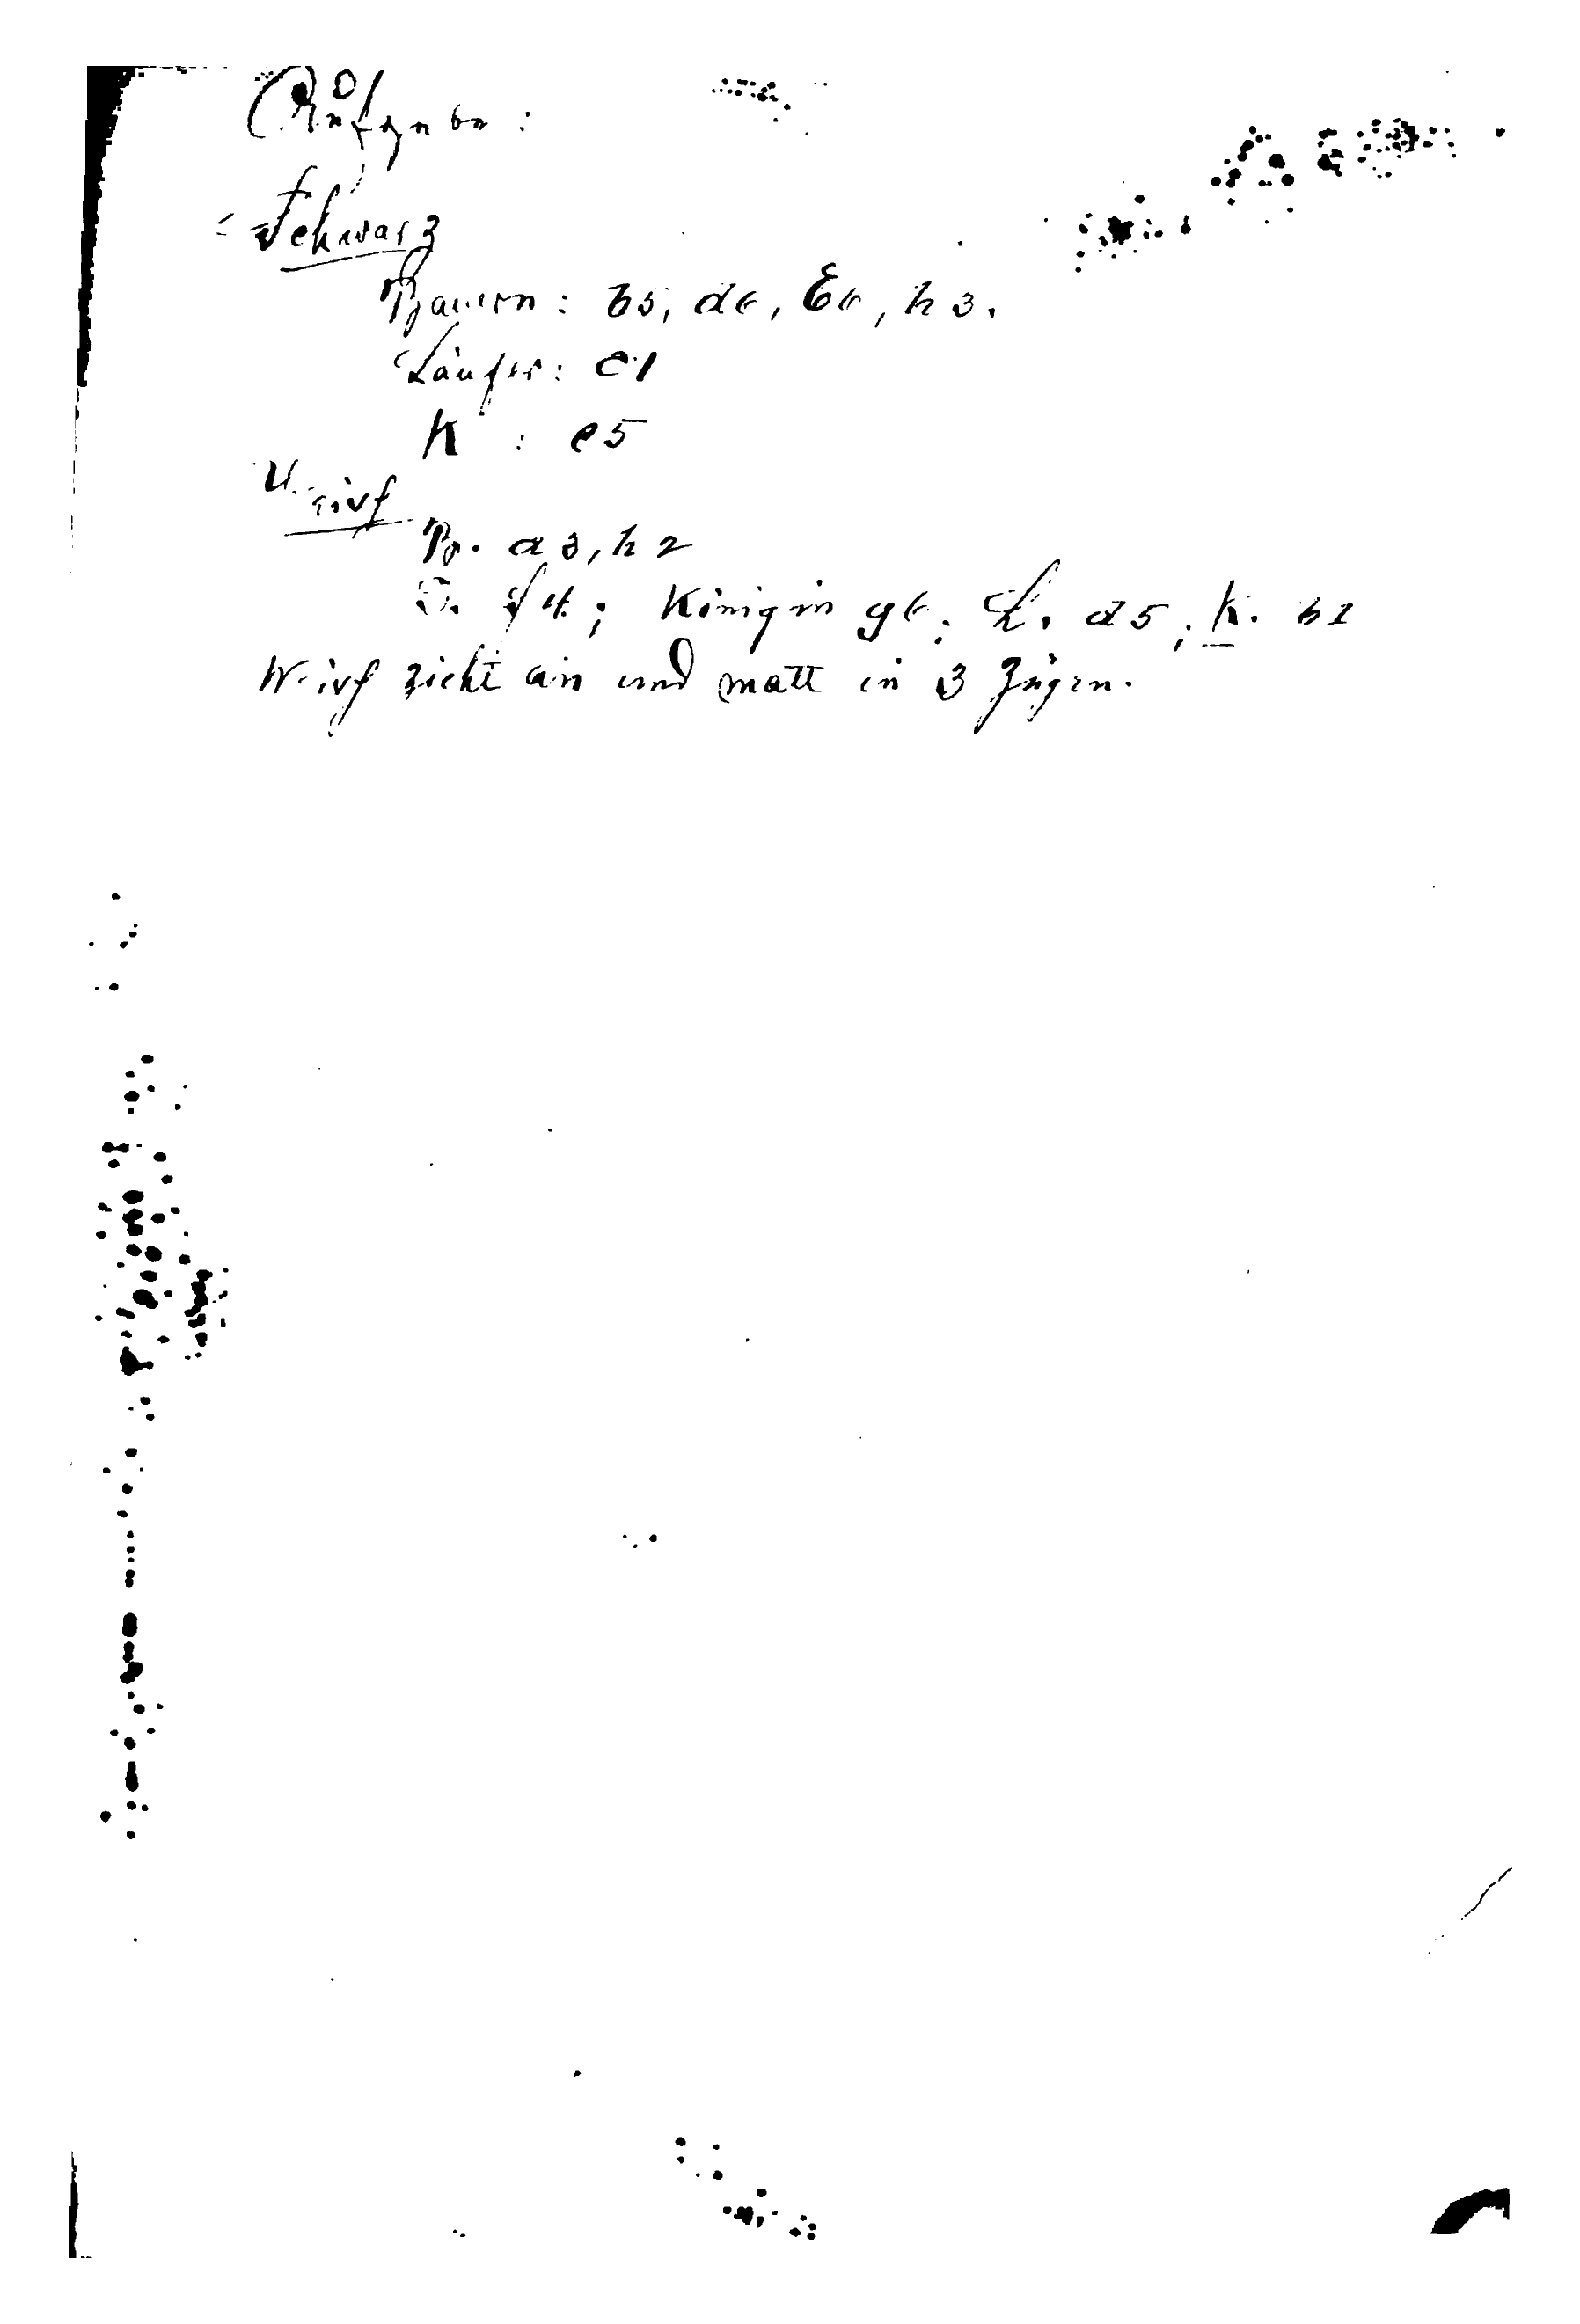 Aufgabe:
Schwarz
Bauern: b5, d6, E6, h3.
Läufer: e1
K : e5
Weiß
B. a3, h2
T. f4; Königin g6; L. d5; K. b1
Weiß zieht an und matt in 3 Zügen.